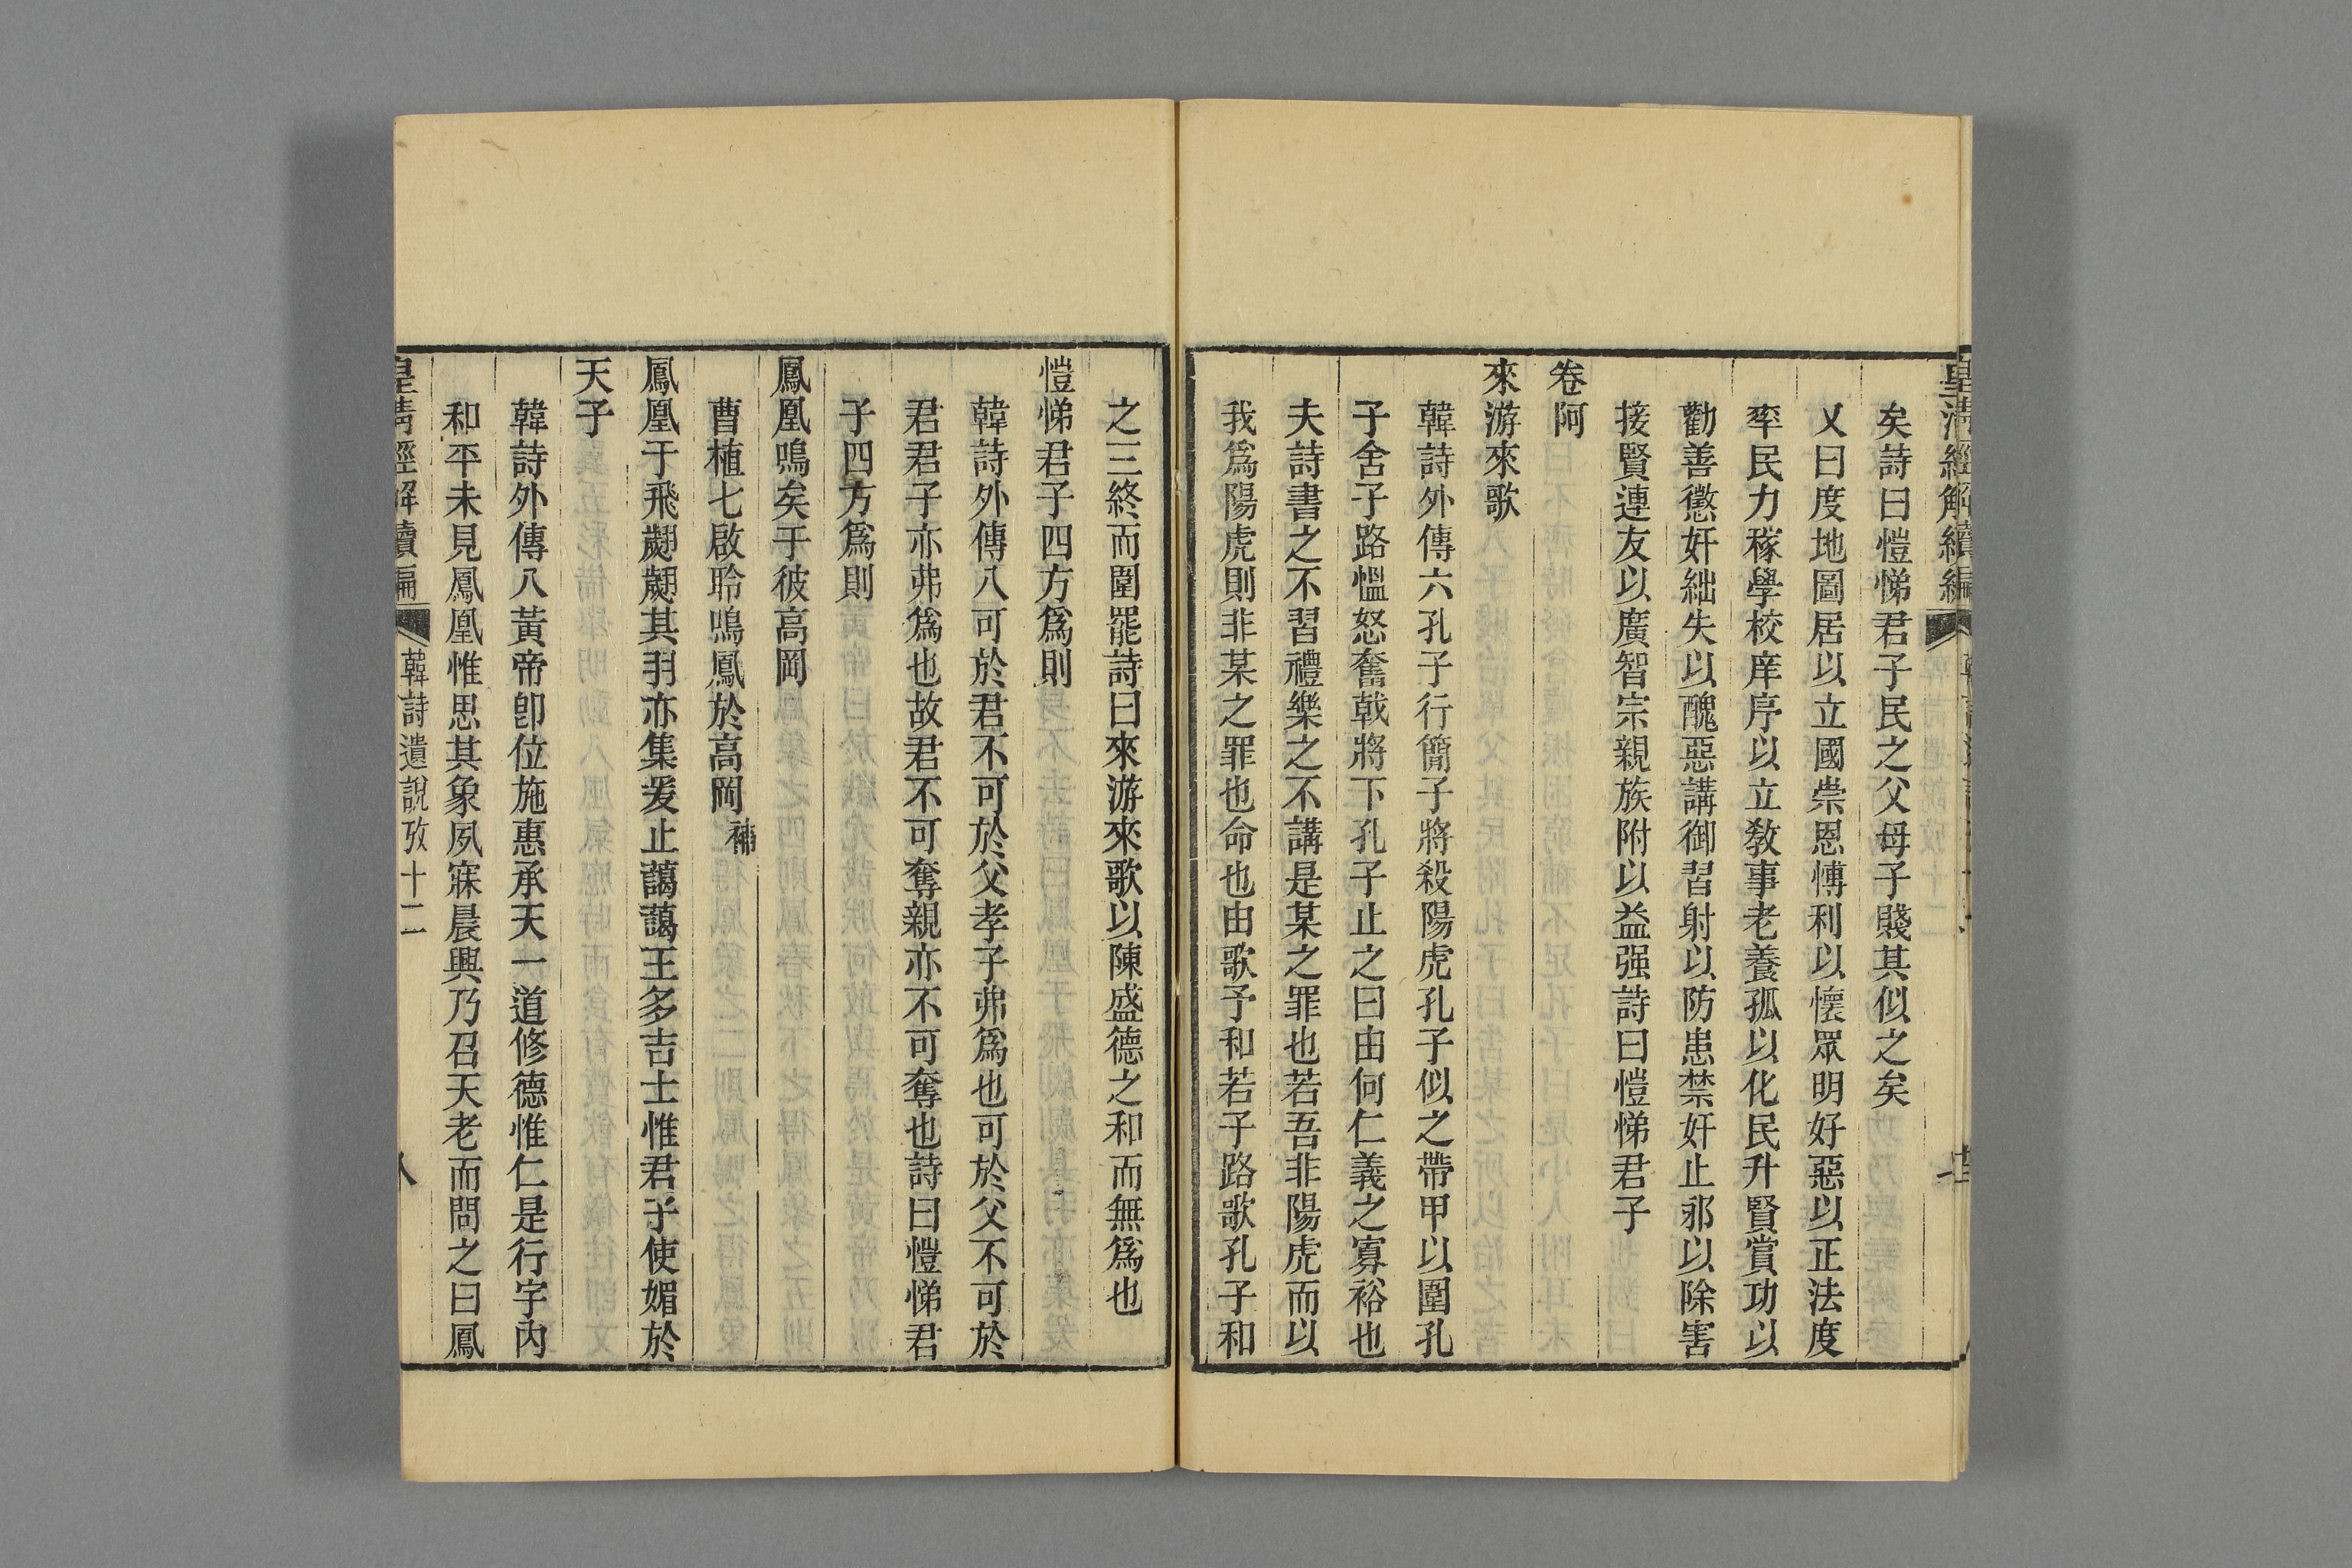 皇清經解續編
矣詩曰愷悌君子民之父母子賤其似之矣
又曰度地圖居以立國崇恩愽利以懷眾明好惡以正法度
率民力稼學校庠序以立敎事老養孤以化民升賢賞功以
勸善懲奸絀失以醜惡講御習射以防患禁奸止邪以除害
接賢連友以廣智宗親族附以益强詩曰愷悌君子
卷阿
來游來歌
韓詩外傳六孔子行簡子將殺陽虎孔子似之帶甲以圍孔
子舍子路慍怒奮戟將下孔子止之曰由何仁義之寡裕也
夫詩書之不習禮樂之不講是某之罪也若吾非陽虎而以
我爲陽虎則非某之罪也命也由歌予和若子路歌孔子和
之三終而圍罷詩曰來游來歌以陳盛德之和而無爲也
愷悌君子四方爲則
韓詩外傳八可於君不可於父孝子弗爲也可於父不可於
君君子亦弗爲也故君不可奪親亦不可奪也詩曰愷悌君
子四方爲則
鳳凰鳴矣于彼高岡
曹植七啟聆鳴鳳於高岡補
鳳凰于飛翽翽其羽亦集爰止藹藹王多吉士惟君子使媚於
天子
韓詩外傳八黃帝卽位施惠承天一道修德惟仁是行宇內
和平未見鳳凰惟思其象夙寐晨興乃召天老而問之曰鳳
皇清經解續編 韓詩遺說攷十二 八